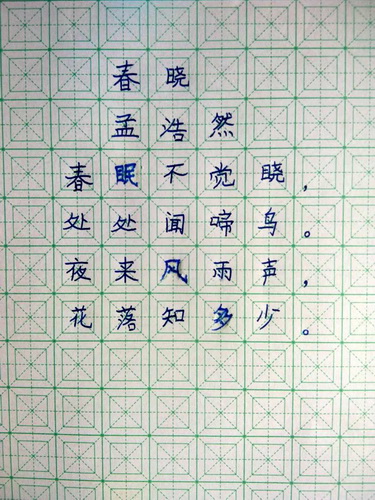 春晓
孟浩然
春眠不觉晓,
处处闻啼鸟。
夜来风雨声,
花落知多少。